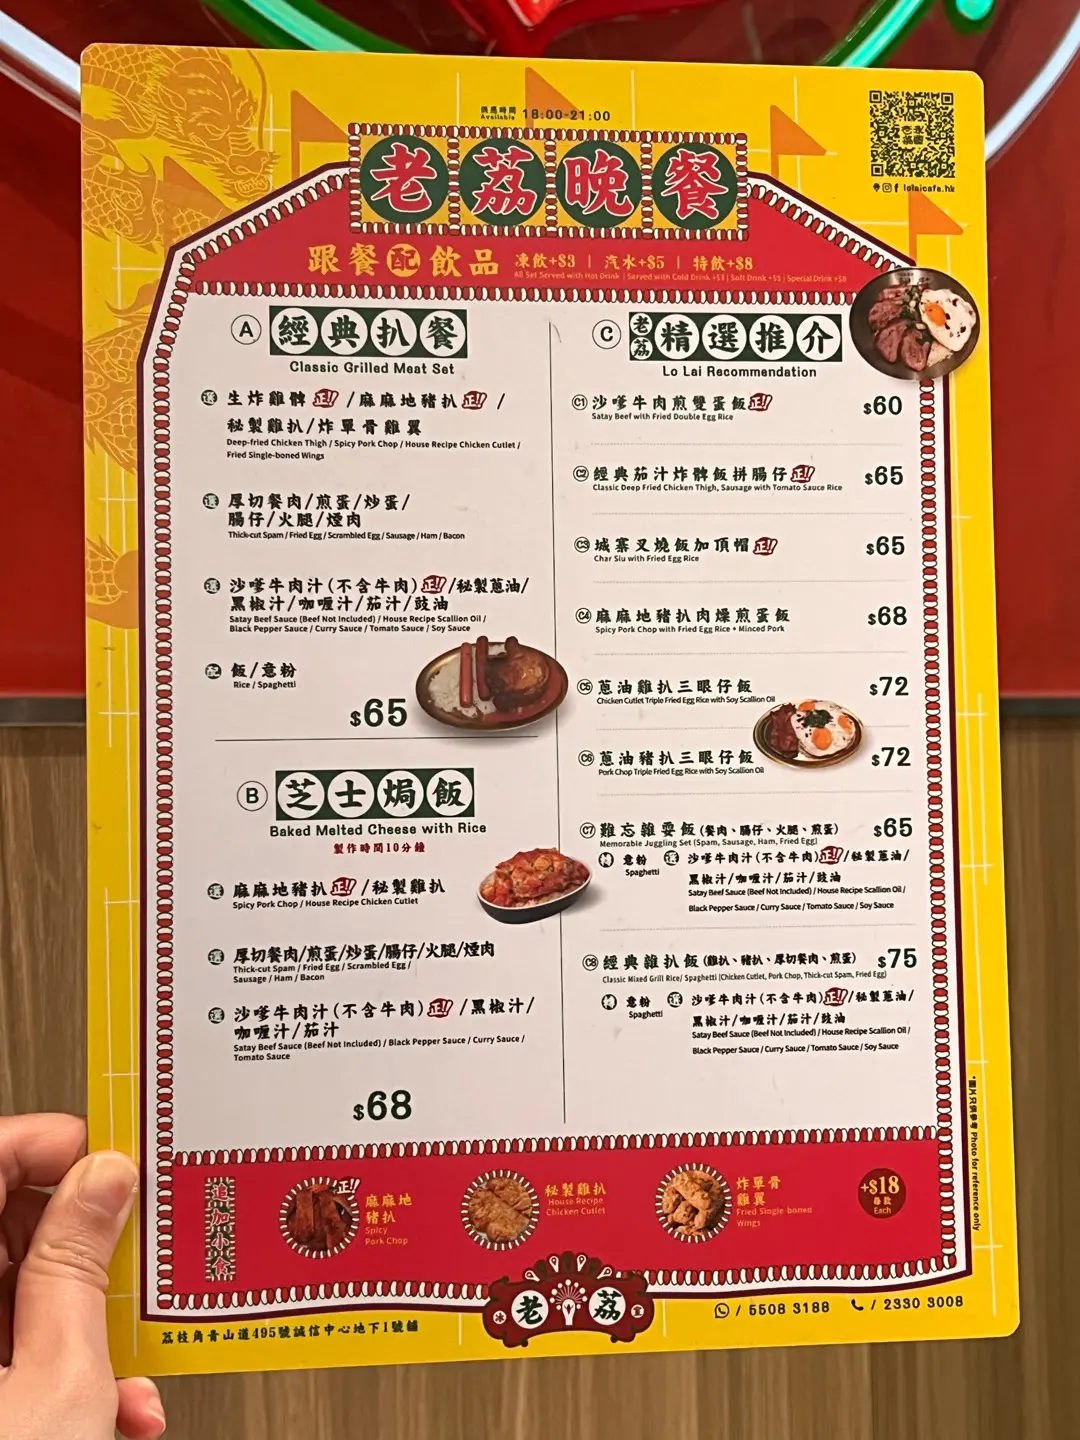 供應時間 Available 18:00-21:00
老荔晚餐
lolaicafe.hk
跟餐配飲品
凍飲+$3 | 汽水+$5 | 特飲+$8
All Set Served with Hot Drink | Served with Cold Drink +$3 | Soft Drink +$5 | Special Drink +$8
A 經典扒餐
Classic Grilled Meat Set
選 生炸雞髀 正!! /麻麻地豬扒 正!! /
秘製雞扒/炸單骨雞翼
Deep-fried Chicken Thigh / Spicy Pork Chop / House Recipe Chicken Cutlet /
Fried Single-boned Wings
選 厚切餐肉/煎蛋/炒蛋/
腸仔/火腿/煙肉
Thick-cut Spam / Fried Egg / Scrambled Egg / Sausage / Ham / Bacon
選 沙嗲牛肉汁(不含牛肉) 正!! /秘製蔥油/
黑椒汁/咖喱汁/茄汁/豉油
Satay Beef Sauce (Beef Not Included) / House Recipe Scallion Oil /
Black Pepper Sauce / Curry Sauce / Tomato Sauce / Soy Sauce
配 飯/意粉
Rice / Spaghetti
$65
B 芝士焗飯
Baked Melted Cheese with Rice
製作時間10分鐘
選 麻麻地豬扒 正!! /秘製雞扒
Spicy Pork Chop / House Recipe Chicken Cutlet
選 厚切餐肉/煎蛋/炒蛋/腸仔/火腿/煙肉
Thick-cut Spam / Fried Egg / Scrambled Egg /
Sausage / Ham / Bacon
選 沙嗲牛肉汁(不含牛肉) 正!! /黑椒汁/
咖喱汁/茄汁
Satay Beef Sauce (Beef Not Included) / Black Pepper Sauce / Curry Sauce /
Tomato Sauce
$68
C 老荔 精選推介
Lo Lai Recommendation
C1 沙嗲牛肉煎雙蛋飯 正!! $60
Satay Beef with Fried Double Egg Rice
C2 經典茄汁炸髀飯拼腸仔 正!! $65
Classic Deep Fried Chicken Thigh, Sausage with Tomato Sauce Rice
C3 城寨叉燒飯加頂帽 正!! $65
Char Siu with Fried Egg Rice
C4 麻麻地豬扒肉燥煎蛋飯 $68
Spicy Pork Chop with Fried Egg Rice + Minced Pork
C5 蔥油雞扒三眼仔飯 $72
Chicken Cutlet Triple Fried Egg Rice with Soy Scallion Oil
C6 蔥油豬扒三眼仔飯 $72
Pork Chop Triple Fried Egg Rice with Soy Scallion Oil
C7 難忘雜耍飯 (餐肉、腸仔、火腿、煎蛋) $65
Memorable Juggling Set (Spam, Sausage, Ham, Fried Egg)
轉 意粉 選 沙嗲牛肉汁(不含牛肉) 正!! /秘製蔥油/
Spaghetti
黑椒汁/咖喱汁/茄汁/豉油
Satay Beef Sauce (Beef Not Included) / House Recipe Scallion Oil /
Black Pepper Sauce / Curry Sauce / Tomato Sauce / Soy Sauce
C8 經典雜扒飯 (雞扒、豬扒、厚切餐肉、煎蛋) $75
Classic Mixed Grill Rice/ Spaghetti (Chicken Cutlet, Pork Chop, Thick-cut Spam, Fried Egg)
轉 意粉 選 沙嗲牛肉汁(不含牛肉) 正!! /秘製蔥油/
Spaghetti
黑椒汁/咖喱汁/茄汁/豉油
Satay Beef Sauce (Beef Not Included) / House Recipe Scallion Oil /
Black Pepper Sauce / Curry Sauce / Tomato Sauce / Soy Sauce
*圖片只供參考 Photo for reference only
追加小食
正!!
麻麻地
豬扒
Spicy
Pork Chop
秘製雞扒
House Recipe
Chicken Cutlet
炸單骨
雞翼
Fried Single boned
Wings
+$18
每款
Each
冰 老荔 室
荔枝角青山道495號誠信中心地下1號舖
/ 5508 3188 / 2330 3008